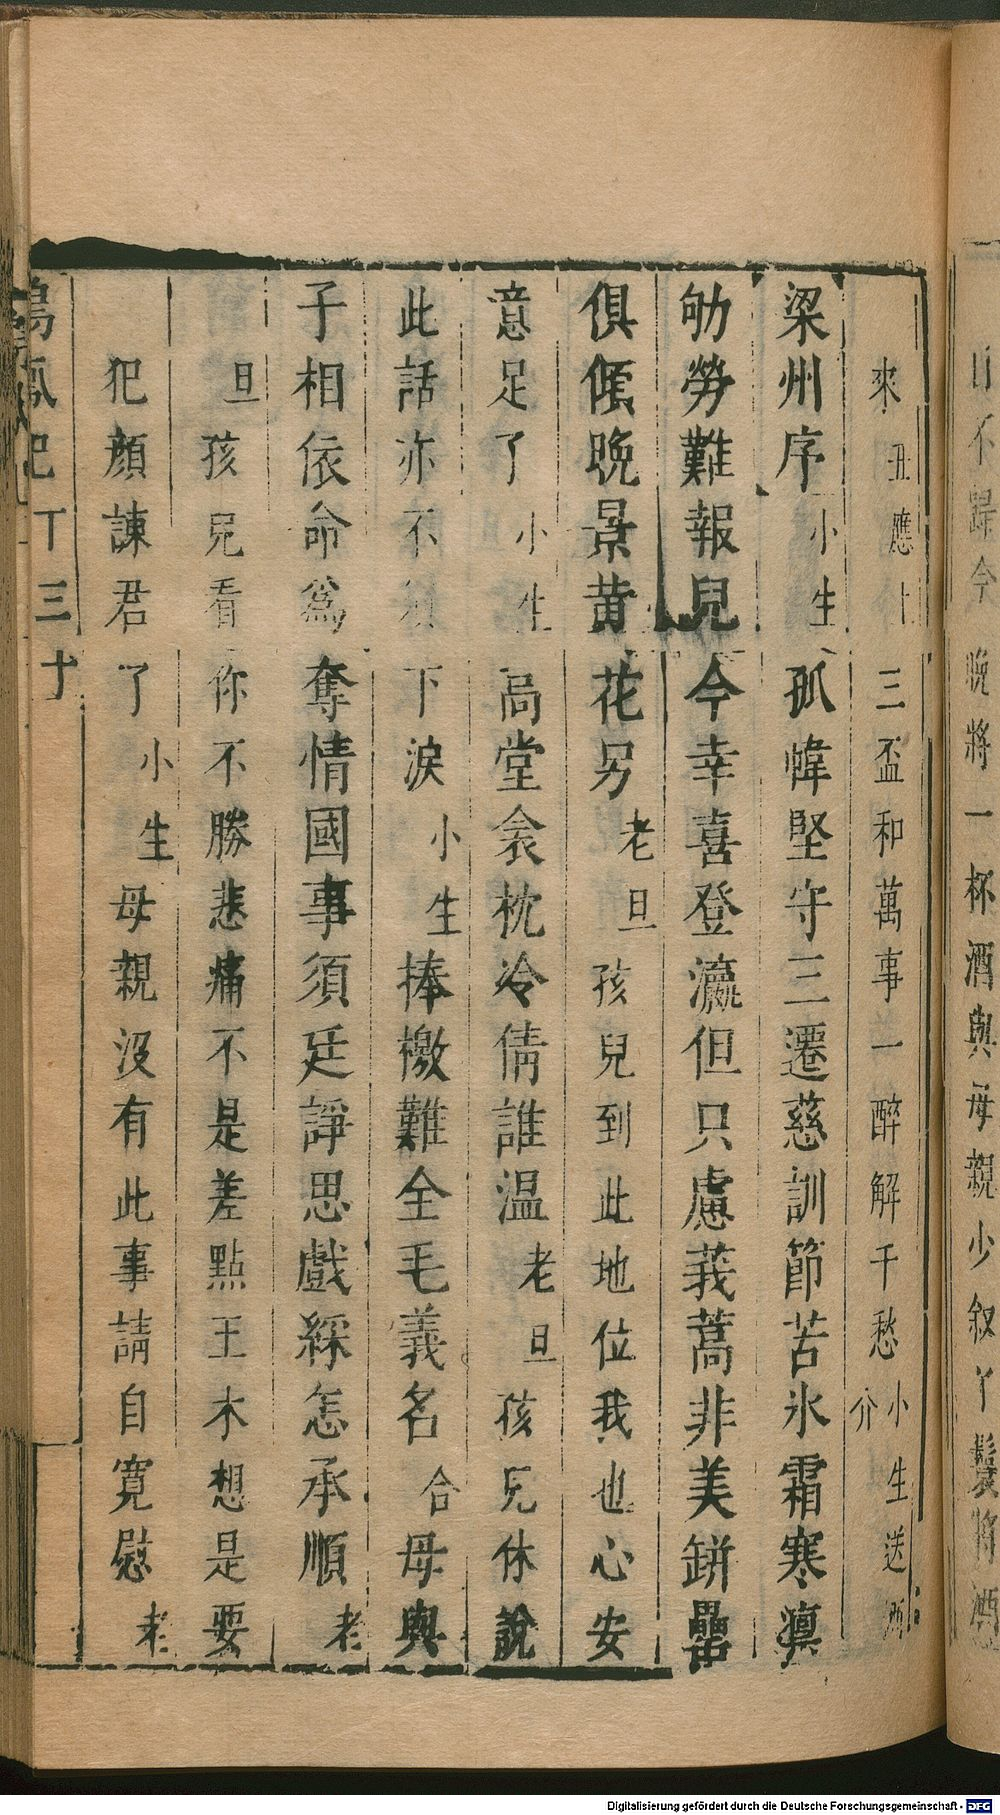 日不歸今 晚將一杯酒與母親少叙丫鬟將酒
來 丑應 三盃和萬事一醉解千愁 小生送酒介
梁州序 小生 孤幃堅守三遷慈訓節苦氷霜寒凛
劬勞難報兒今幸喜登瀛但只慮莪蒿非美缾罍
俱傾晚景黄花另 老旦 孩兒到此地位我也心安
意足了 小生 高堂衾枕冷倩誰温 老旦 孩兒休說
此話亦不須下淚 小生 捧檄難全毛義名 合 母與
子相依命爲奪情國事須廷諍思戲綵怎承順 老
旦 孩兒看你不勝悲痛不是差點王木想是要
犯顔諫君了 小生 母親沒有此事請自寬慰 老
鳴鳳記 丁 三十
Digitalisierung gefördert durch die Deutsche Forschungsgemeinschaft - DFG